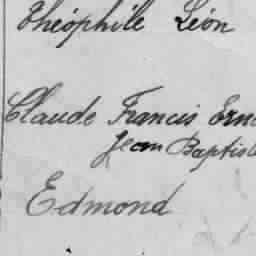 Théophile Léon
Claude Francis Ern
Jean Baptist
Edmond